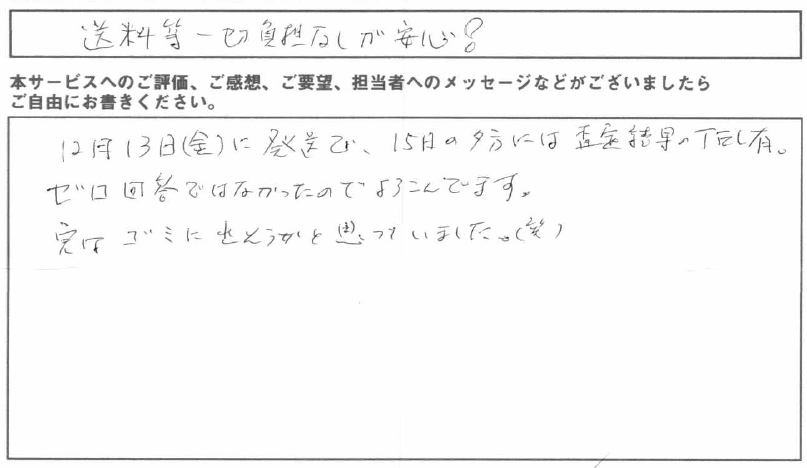 送料等一切負担なしが安心!
本サービスへのご評価、ご感想、ご要望、担当者へのメッセージなどがございましたら
ご自由にお書きください。
12月13日(金)に発送で、15日の夕方には査定結果のTEL有。
ゼロ回答ではなかったのでよろこんでます。
実はゴミに出そうかと思っていました。(笑)